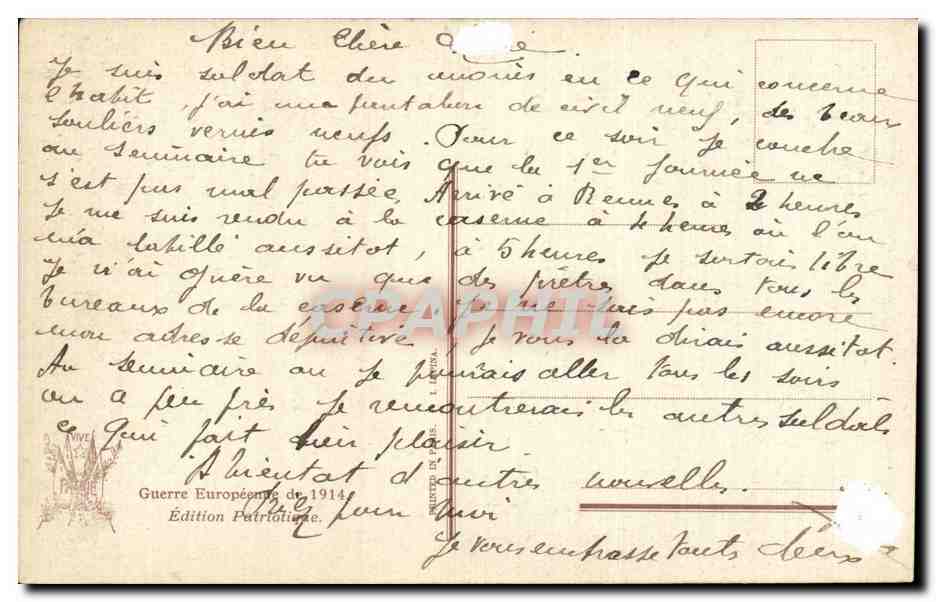 Bien Chère
Je suis soldat du moins en ce qui concerne
l'habit, j'ai un pantalon de civil neuf, des beaux
souliers vernis neufs. Pour ce soir je couche
au seminaire tu vois que la 1er journée ne
s'est pas mal passée, Arrivé à Rennes à 2 heures
Je me suis rendu à la caserne à 4 heures où l'on
m'a habillé aussitot, à 5 heures je sortais libre
Je n'ai guère vu que des prêtres dans tous les
bureaux de la caserne. Je ne sais pas encore
mon adresse définitive, je vous la dirais aussitot.
Au seminaire ou je pourrais aller tous les soirs
ou a peu près je rencontrerais les autres soldats
ce qui fait bien plaisir.
A bientot d'autres nouvelles.
pour moi
Je vous embrasse touts deux
CPAPHIL
VIVE
Guerre Européenne de 1914
Édition Patriotique.
PRINTED IN PARIS. I. LAPINA.